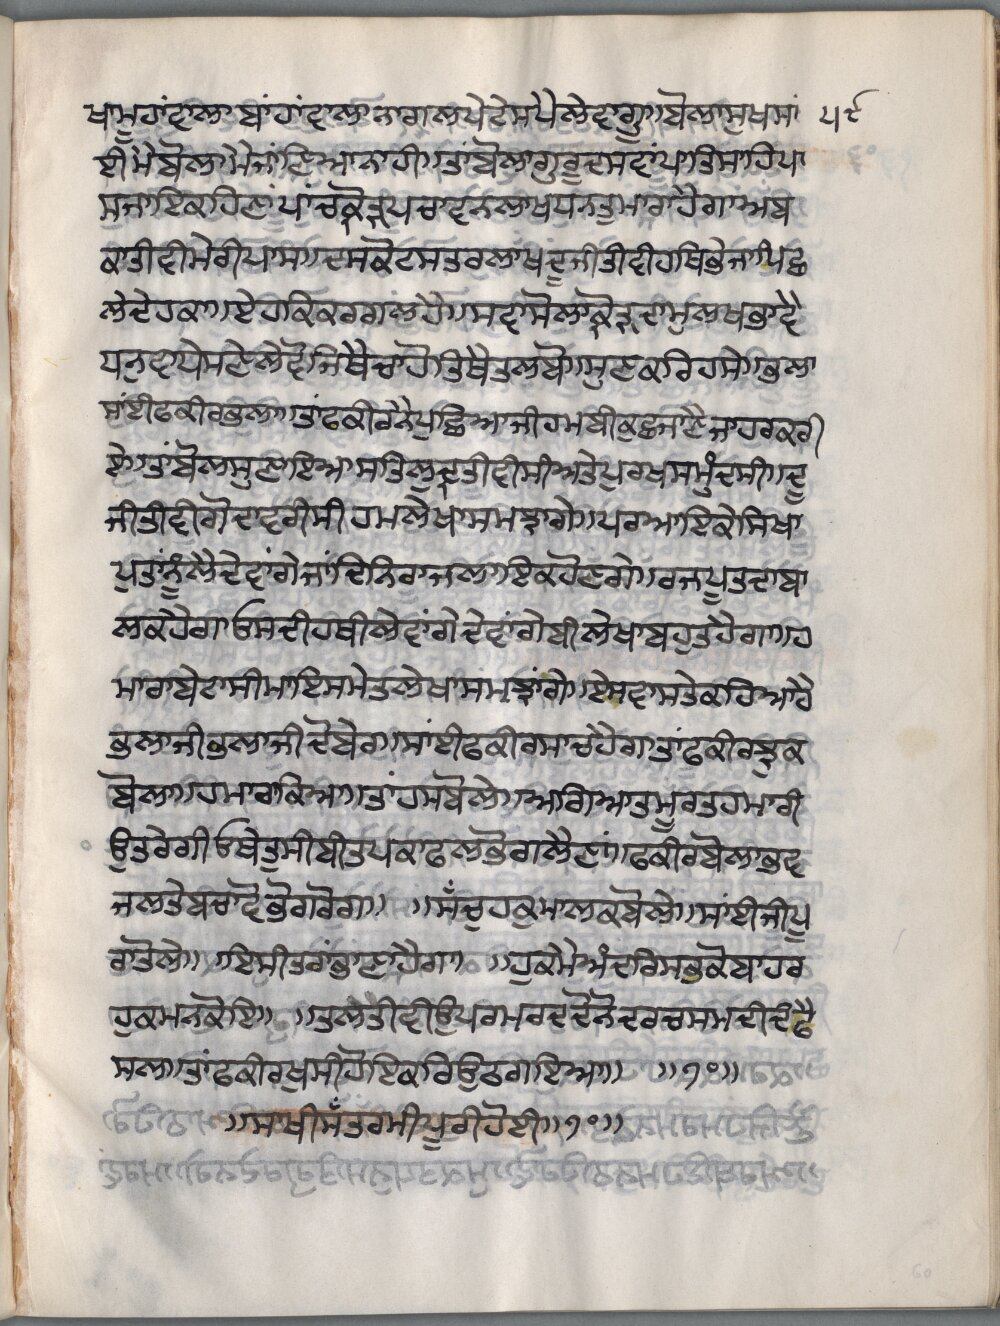 ਖਾਸੂਹਾਂਵਾਲਾ ਬਾਂਹਾਂਵਾਲਾ ਨਾਗਲਪੇਟੇਸਪੈਲੇਵਾਗੂ॥ਬੋਲਾਸੁਖਸਾਂ ੫੯
ਈਂਮੈਬੋਲਾਮੈਜਾਂਣਿਆਨਾਹੀ॥ਤਾਂਬੋਲਾਗੁਰੂਦਸਵਾਂਪਾਤਿਸਾਹਿਪਾ
ਸਜਾਇਕਹਿਣਾਂਪਾਂਚਕੋੜੂਪਚਾਵਨਲਾਖਧਨਤੁਮਾਰਾਹੈਗਾਅੰਬ
ਕਾਤੀਵੀਮੇਰੀਪਾਸ॥ਦਸਕੋਟਸਤਰਲਾਖਦੂਜੀਤੀਵੀਹਥਿਭੇਜਾਪਿਛ
ਲੇਦੇਹਕਾ॥ਏਹਕਿਕਰਗਲਹੈ॥ਸਵਾਸੋਲਾਕ੍ਰੋੜਦਾਮੁਲਖਭਾਵੈ
ਧਨੁਵਾਧੇਸਣੇਲੇਵੋਜਿਥੈਚਾਹੋਤਿਥੈਤੁਲਬੋ॥ਸੁਣਕਰਿਹਸੇ॥ਭਲਾ
ਸਾਂਈਫਕੀਰਭਲਾ॥ਤਾਂਫਕੀਰਨੈਪੁਛਿਆਜੀਹਮਬੀਕੁਛਜਾਣੈਜਾਹਰਕਰੀ
ਏ॥ਤਾਂਬੋਲਸੁਣਾਇਆਸਤਿਲੁਦ੍ਰਤੀਵੀਸੀਅਤੇਪੁਰਖਸਮੁੰਦਸੀ॥ਦੂ
ਜੀਤੀਵੀਗੋਦਾਵਰੀਸੀਹਮਲੇਖਾਸਮਝਾਗੇ॥ਪਰਆਇਕੇਸਿਖਾ
ਪੁਤਾਂਨੂੰਲੈਦੇਵਾਂਗੇਜਾਂਦਿਨਿਰਾਜਲਾਇਕਹੋਣਗੇ॥ਰਜਪੂਤਦਾਬਾ
ਲਕਹੈਗਾਓਸਦੀਹਥੀਲੇਵਾਂਗੇਦੇਵਾਂਗੇਬੀਲੇਖਾਬਹੁਤਹੈਗਾ॥ਹ
ਮਾਰਾਬੇਟਾਸੀਮਾਇਸਮੇਤਲੇਖਾਸਮਝਾਂਗੇ॥ਏਸਵਾਸਤੇਕਹਿਆਹੈ
ਭਲਾਜੀਭਲਾਜੀਦੋਬੈਰ॥ਸਾਂਈਫਕੀਰਸਾਚਹੈਗਾਤਾਂਫਕੀਰਝੁਕ
ਬੋਲਾ॥ਹਮਾਰਾਕਿਆ॥ਤਾਂਹਸਬੋਲੇ॥ਆਗਿਆਤਮੂਰਤਹਮਾਰੀ
ਉਤਰੇਗੀਓਥੇਤੁਸੀਬੀਤਪਕਾਫਲਭੋਗਲੈਣਾਂ॥ਫਕੀਰਬੋਲਾਭਵ
ਜਲਤੇਬਚਾਵੋਭੋਗਰੋਗ॥ ॥ਸੱਚੁਹਕੁਮਾਲਕਬੋਲੇ॥ਸਾਂਈਜੀਪੂ
ਰਾਤੋਲੇ॥ ॥ਇਸੀਤਰਾਂਭਾਣਾਹੈਗਾ॥ ॥ਹੁਕਮੈਅੰਦਰਿਸਭੁਕੋਬਾਹਰ
ਹੁਕਮਨਕੋਇ॥ ॥ਤੁਲਤੀਵੀਉਪਰਮਰਦਦੋਨੋਦਰਚਸਮਦੀਦੰਫੈ
ਸਲਾ॥ਤਾਂਫਕੀਰਖੁਸੀਹੋਇਕਰਿਉਠਗਇਆ॥ ॥੭੦॥
॥ਸਾਖੀਸੱਤਰਮੀਪੂਰੀਹੋਈ॥੭੦॥
60